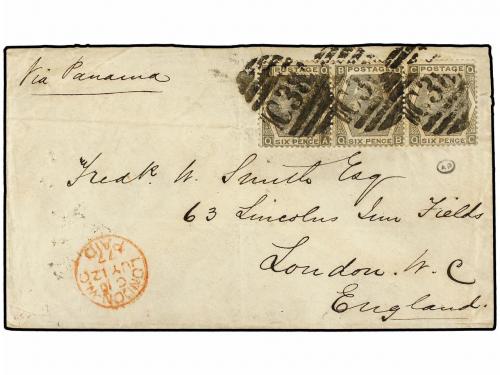 Via Panama
POSTAGE POSTAGE POSTAGE
C38 C38 C38
Q SIX PENCE A Q SIX PENCE B Q SIX PENCE C
Fredk. W. Smith Esq
63 Lincolns Inn Fields
London. W. C
England.
LONDON. W.C
C 10
JY 12
77
PAID